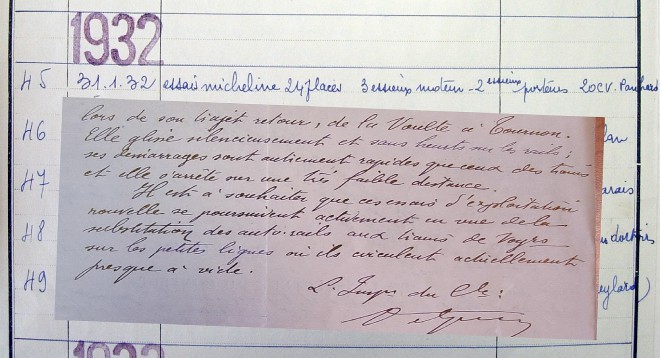 1932
45 31.1.32 essais micheline 24 places 3 essieux moteur - 2 essieux porteurs 20CV. Panhard
46
47
48
49
lors de son trajet retour, de la Voulte à Tournon.
Elle glisse silencieusement et sans heurts sur les rails;
ses démarrages sont autrement rapides que ceux des trains
et elle s'arrête sur une très faible distance.
Il est à souhaiter que ces essais d'exploitation
nouvelle se poursuivent activement en vue de la
substitution des auto-rails aux trains de Voyrs
sur les petites lignes où ils circulent actuellement
presque à vide.
L. Insp. du